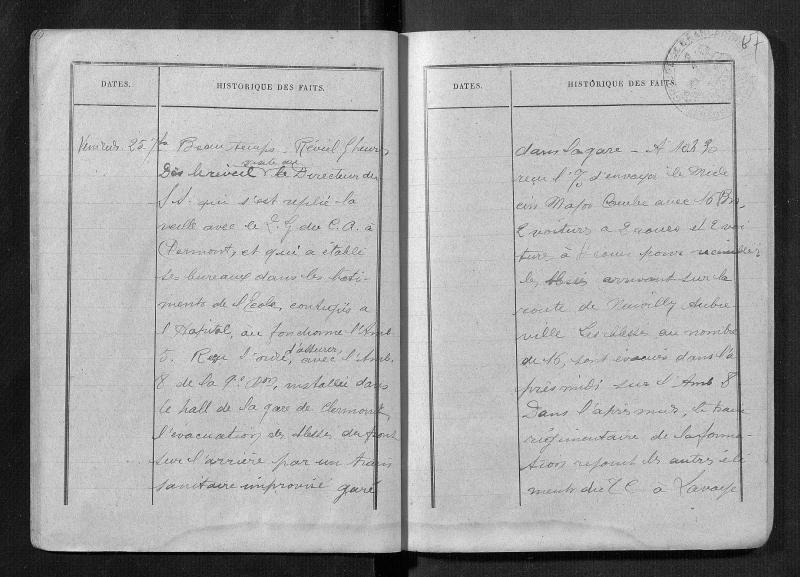 DATES.
HISTORIQUE DES FAITS.
Vendredi 25 7bre
Beau temps - Réveil 5 heures
Dès le réveil visite au Directeur du
S.S. qui s'est replié la
veille avec le Q.G du C.A. à
Clermont, et qui a établi
ses bureaux dans les bâti-
ments de l'École, contigus à
l'Hôpital, où fonctionne l'Amb.
5. Reçu l'ordre d'assurer, avec l'Amb.
8 de la 9e Don, installée dans
le hall de la gare de Clermont,
l'évacuation des blessés du front
sur l'arrière par un train
sanitaire improvisé garé
67
DATES.
HISTORIQUE DES FAITS.
dans la gare - A 10h30
reçu l'O d'envoyer le Méde
cin Major Combe avec 16 Brs,
2 voitures à 2 roues et 2 voi
tures à 4 roues pour recueillir
les blessés arrivant sur la
route de Neuvilly Aubré
ville Les blessés au nombre
de 16, sont évacués dans l'a
près midi sur l'Amb 8
Dans l'après midi, le train
régimentaire de la forma-
tion rejoint les autres élé
ments du TC à Lavoye